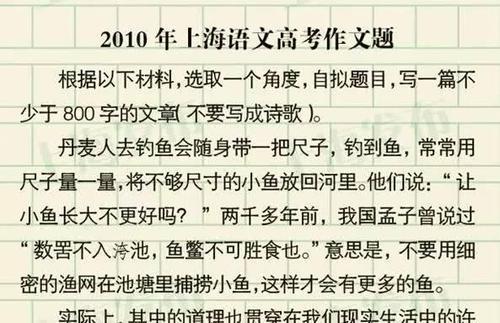 2010 年上海语文高考作文题
根据以下材料，选取一个角度，自拟题目，写一篇不
少于 800 字的文章（不要写成诗歌）。
丹麦人去钓鱼会随身带一把尺子，钓到鱼，常常用
尺子量一量，将不够尺寸的小鱼放回河里。他们说：“让
小鱼长大不更好吗？”两千多年前，我国孟子曾说过
“数罟不入洿池，鱼鳖不可胜食也。”意思是，不要用细
密的渔网在池塘里捕捞小鱼，这样才会有更多的鱼。
实际上，其中的道理也贯穿在我们现实生活中的许